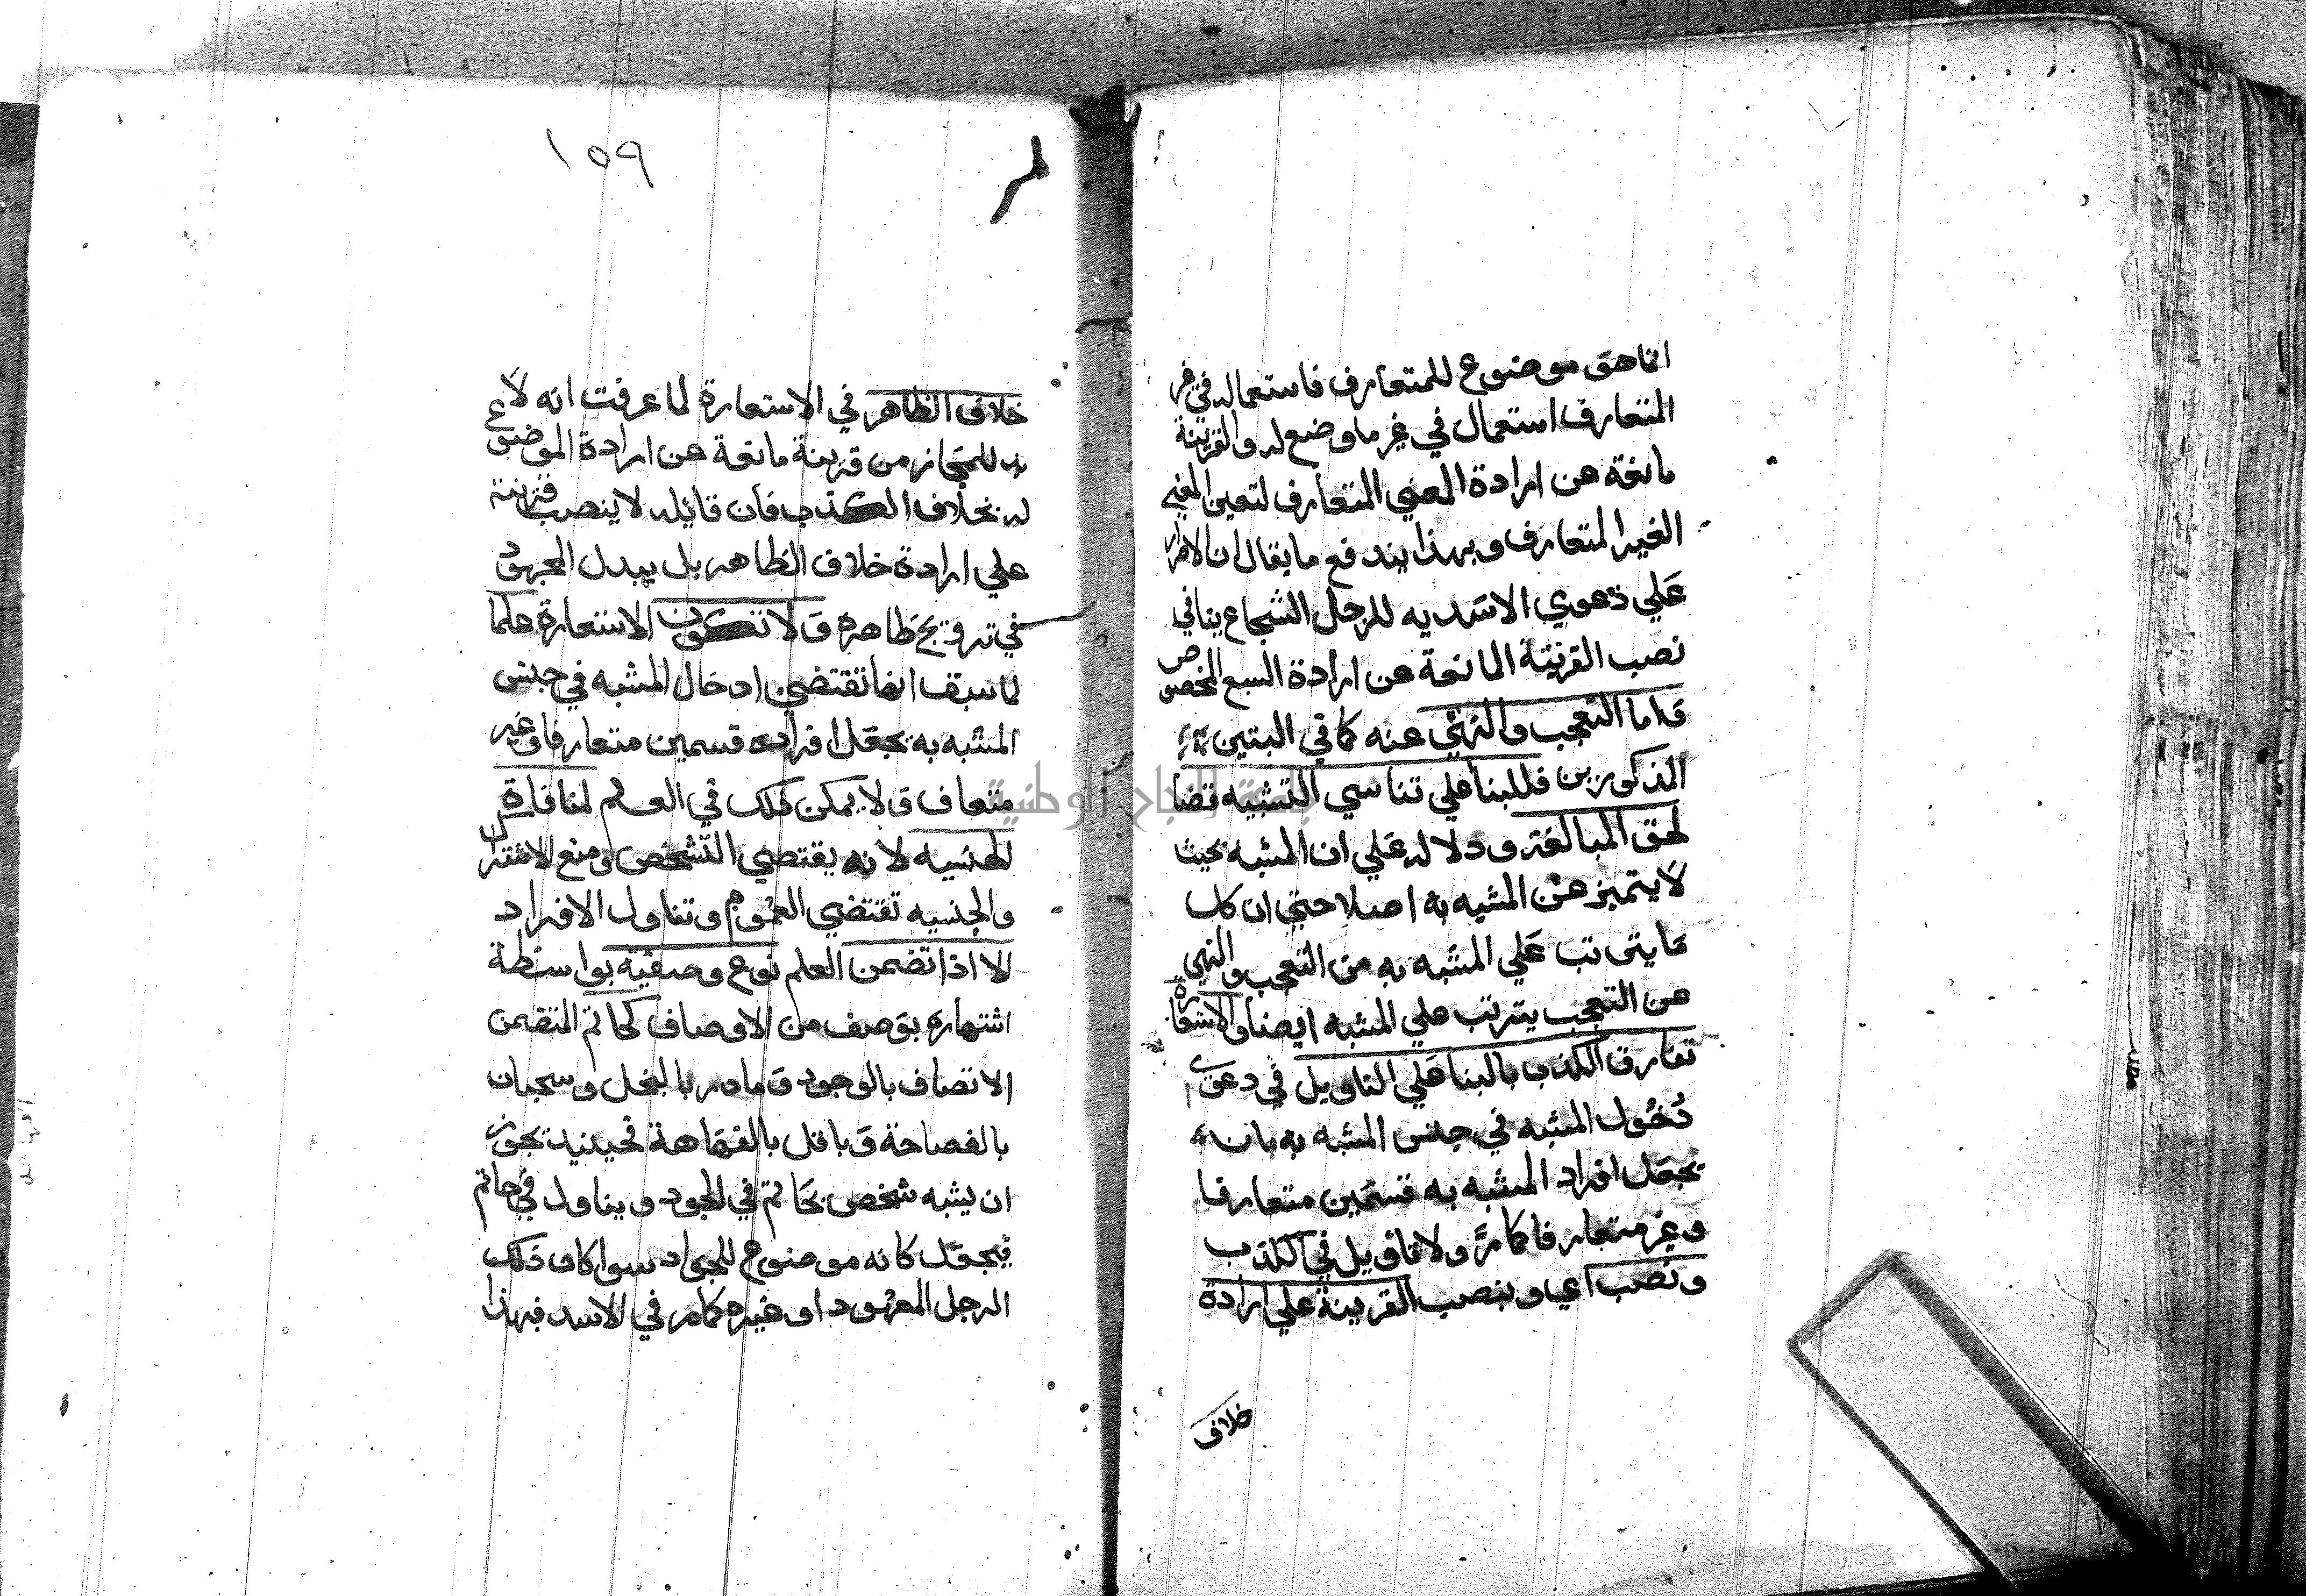 انما هو موضوع للمتعارف فاستعماله في غير
المتعارف استعمال في غير ما وضع له والقرينة
مانعة عن ارادة المعني المتعارف لتعين المعني
الغير المتعارف وبهذا يندفع ما يقال ان الاصرار
علي دعوي الاسديه للرجل الشجاع ينافي
نصب القرينة المانعة عن ارادة السبع المخصوص
واما التعجب والنهي عنه كما في البيتين
المذكورين فللبنا علي تناسي التشبيه قضا
لحق المبالغة ودلاله علي ان المشبه بحيث
لا يتميز عن المشبه به اصلا حتي ان كل
ما يترتب علي المشبه به من التعجب والنهي
عن التعجب يترتب علي المشبه ايضا والاستعارة
تفارق الكذب بالبنا علي التاويل في دعوي
دخول المشبه في جنس المشبه به بان
يجعل افراد المشبه به قسمين متعارفا
وغير متعارفا كما مر ولا تاويل في الكذب
ونصب اي وبنصب القرينة علي ارادة
خلاف
١٥٩
خلاف الظاهر في الاستعارة لما عرفت انه لا
بد للمجاز من قرينة مانعة عن ارادة الموضوع
له بخلاف الكذب فان قائله لا ينصب قرينة
علي ارادة خلاف الظاهر بل يبدل المجهود
في ترويج ظاهره ولا تكون الاستعارة علما
لما سبق انها تقتضي ادخال المشبه في جنس
المشبه به بجعل افراده قسمين متعارفا وغير
متعاف ولا يمكن ذلك في العلم لمنافاة
الجنسيه لانه يقتضي التشخص ومنع الاشتراك
والجنسيه تقتضي العموم وتناول الافراد
الا اذا تضمن العلم نوع وصفية بواسطة
اشتهاره بوصف من الاوصاف كحاتم المتضمن
الاتصاف بالوجود ومادر بالبخل وسحبان
بالفصاحة وباقل بالفهاهة فحينيد يجوز
ان يشبه شخص بحاتم في الجود ويناول في حاتم
فيجعل كانه موضوع للجواد سوا كان ذلك
الرجل المعهود او غيره كما مر في الاسد فبهذا